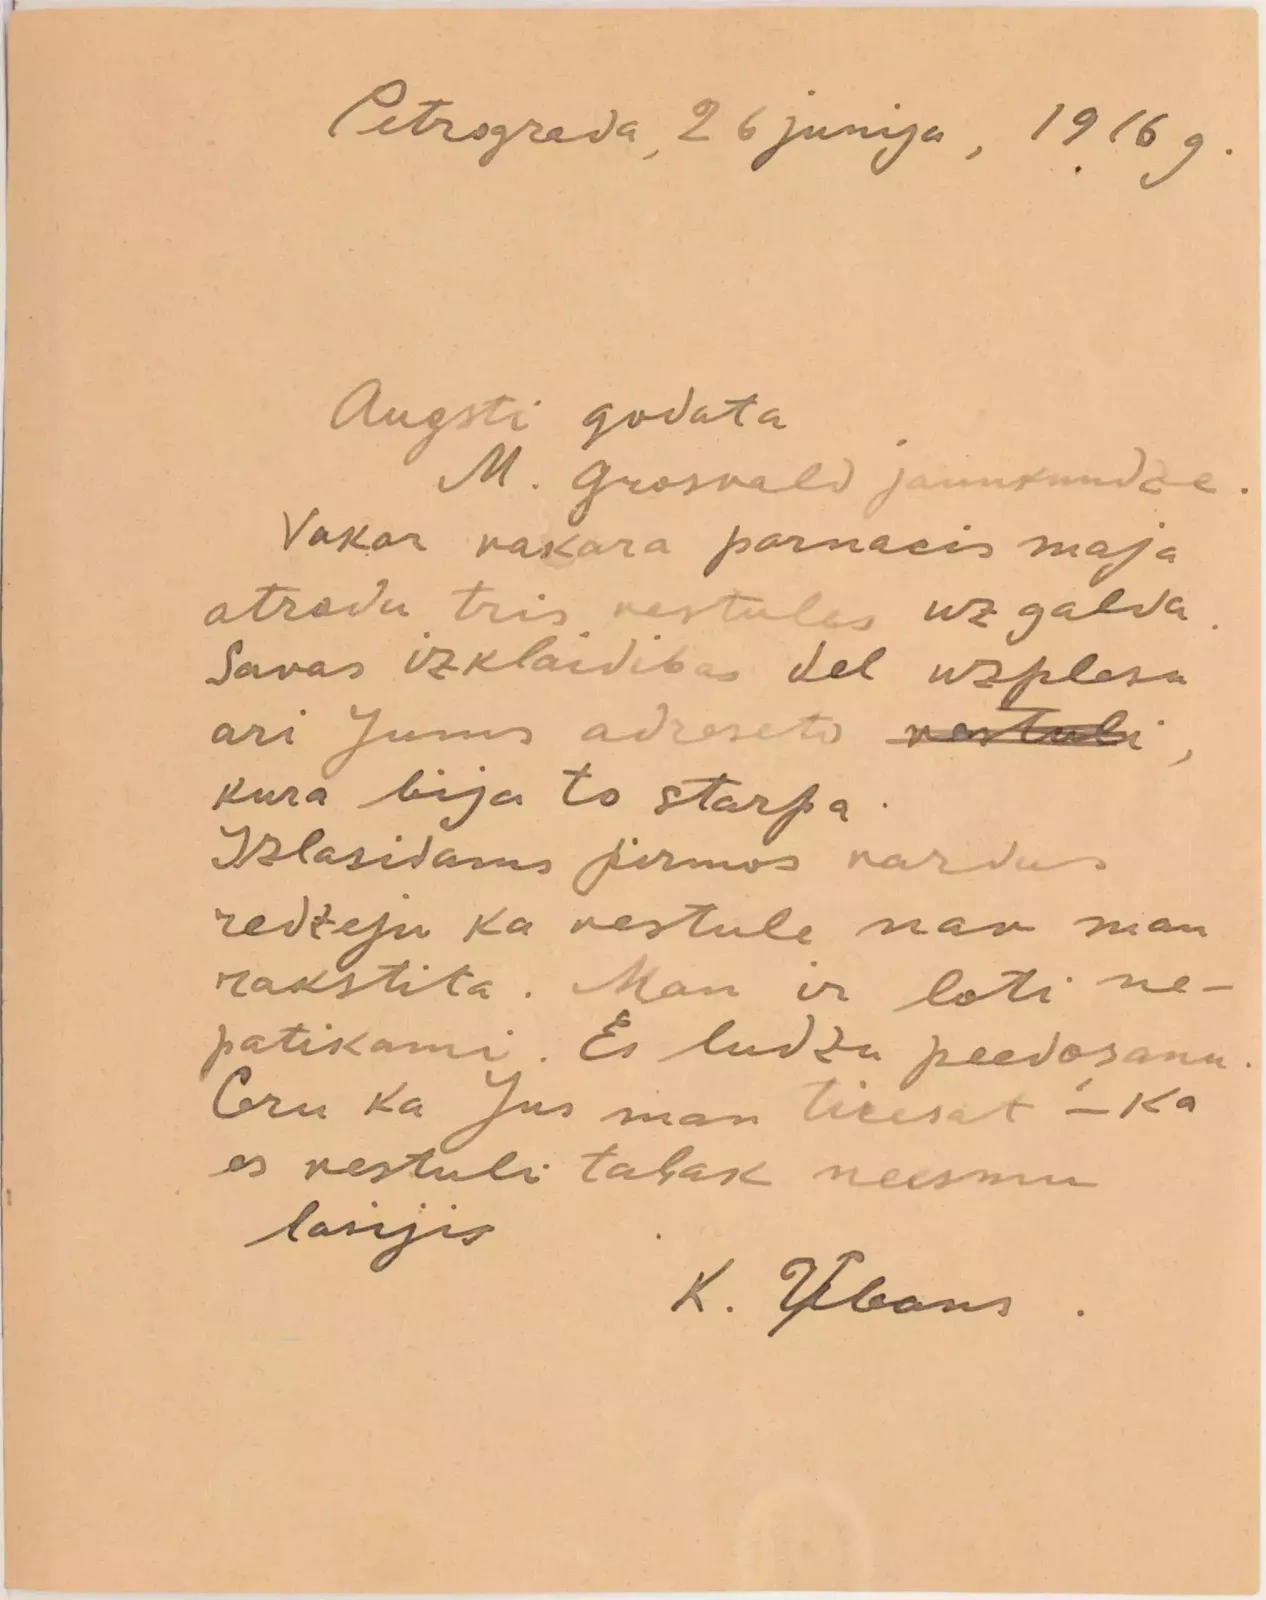 Petrograda, 26 junija, 1916 g.
Augsti godata
M. Grosvald jaunkundze.
Vakar vakara parnacis maja
atradu tris vestules uz galda.
Savas izklaidibas del uzplesu
ari Jums adreseto vestuli,
kura bija to starpa.
Izlasidams pirmos vardus
redzeju ka vestule nav man
rakstita. Man ir loti ne-
patikami. Es ludzu peedosanu.
Ceru ka Jus man ticesat – ka
es vestuli talak neesmu
lasijis
K. Ubans.